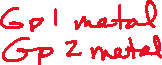 Gp 1 metal
Gp 2 metal